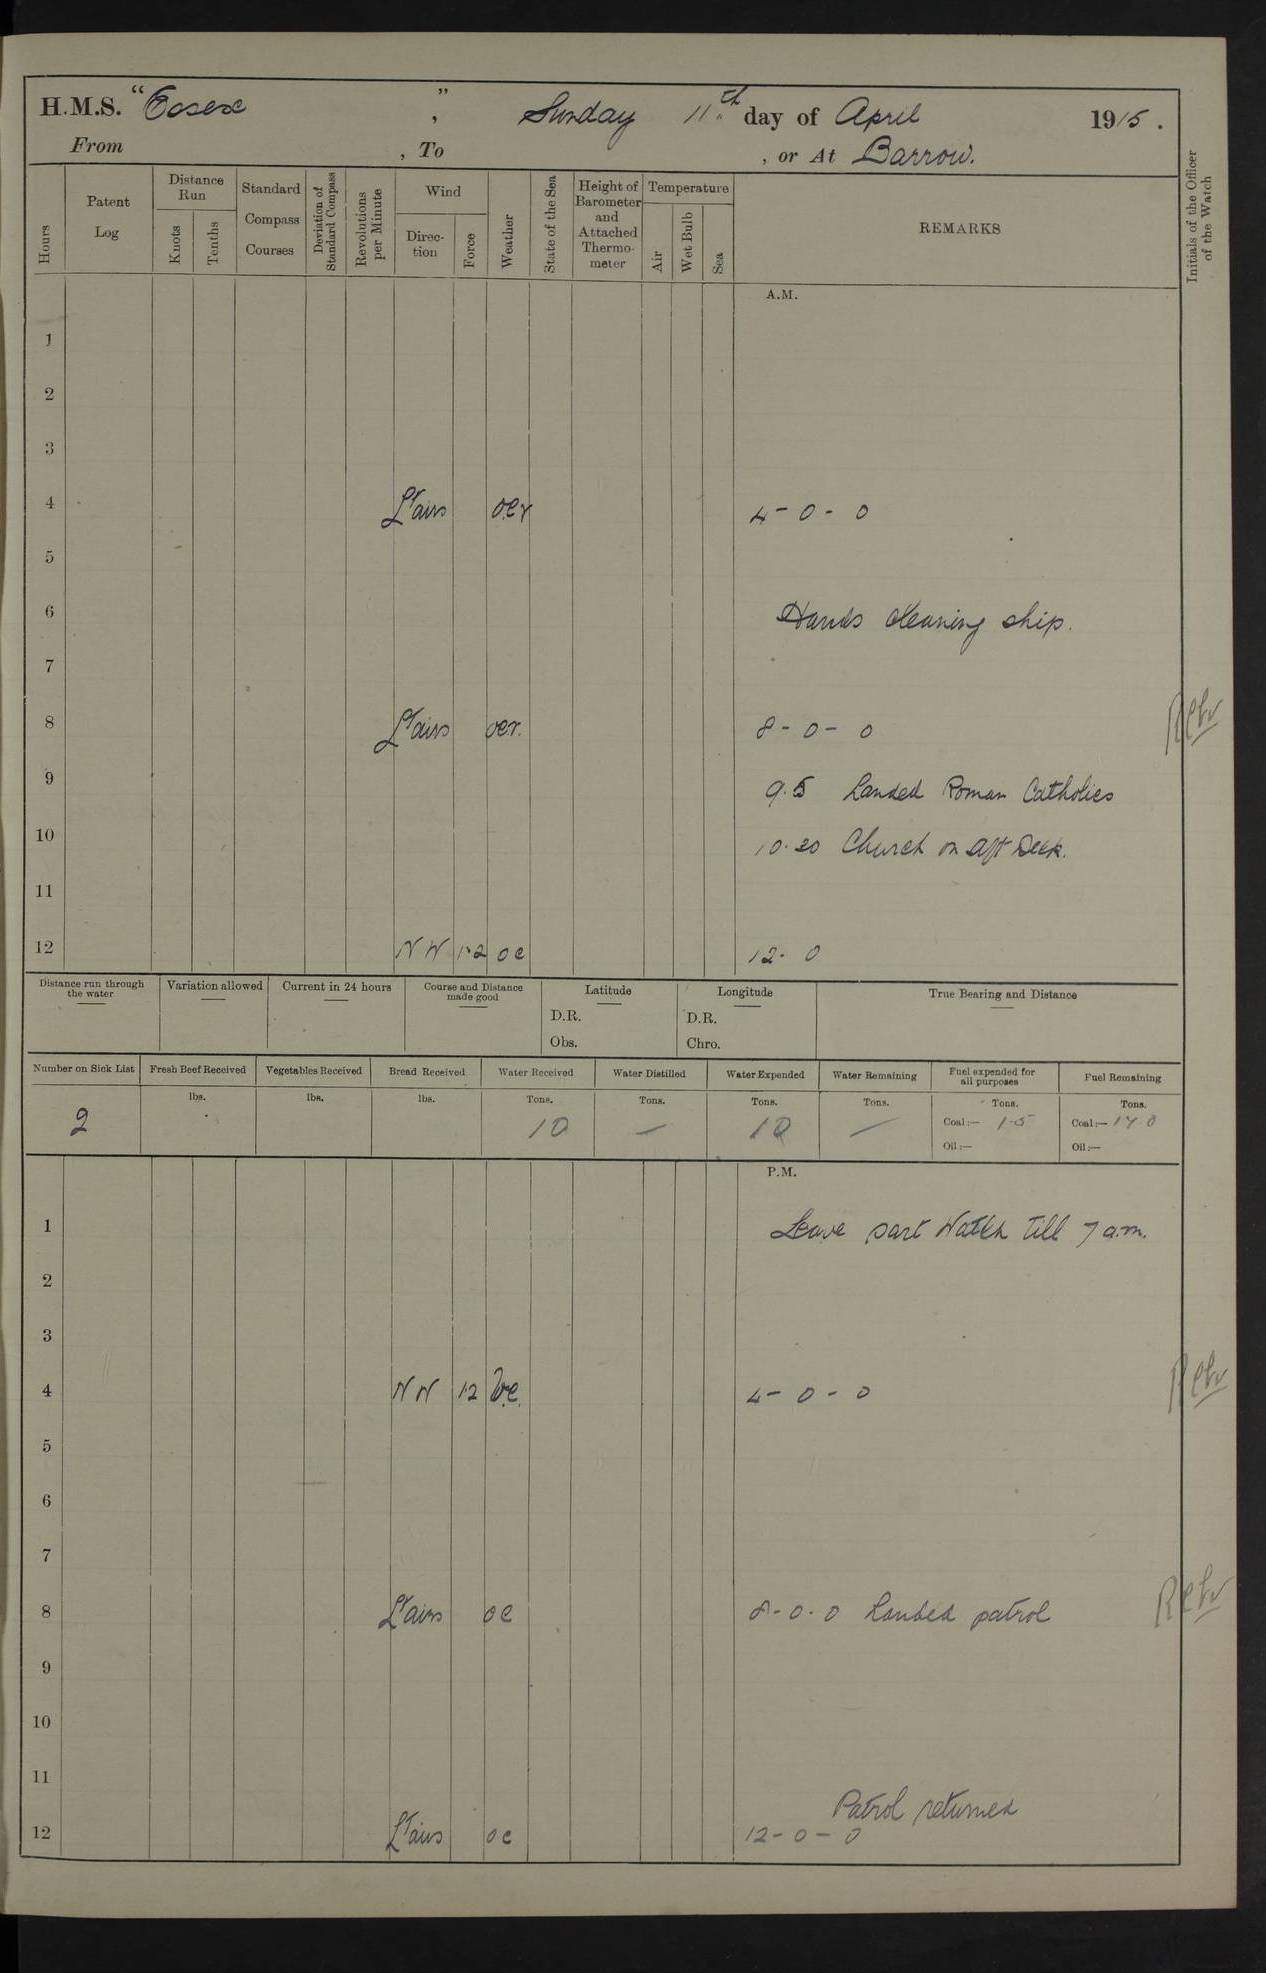 H.M.S. "Essex", Sunday 11th day of April 1915.
From , To , or At Barrow.
Hours
Patent Log
Distance Run
Knots
Tenths
Standard Compass Courses
Deviation of Standard Compass
Revolutions per Minute
Wind
Direction
Force
Weather
State of the Sea
Height of Barometer and Attached Thermometer
Temperature
Air
Wet Bulb
Sea
REMARKS
Initials of the Officer of the Watch
A.M.
1
2
3
4 Lt airs oer 4 - 0 - 0
5
6 Hands cleaning ship.
7
8 Lt airs oer. 8 - 0 - 0
9 9.5 Landed Roman Catholics
10 10.30 Church on aft Deck.
11
12 NW 1.2 oc 12. 0
Distance run through the water
Variation allowed
Current in 24 hours
Course and Distance made good
Latitude
D.R.
Obs.
Longitude
D.R.
Chro.
True Bearing and Distance
Number on Sick List
Fresh Beef Received
Vegetables Received
Bread Received
Water Received
Water Distilled
Water Expended
Water Remaining
Fuel expended for all purposes
Fuel Remaining
2
lbs.
lbs.
lbs.
Tons. 10
Tons. —
Tons. 10
Tons. —
Tons.
Coal:— 15
Oil:—
Tons.
Coal:—
Oil:—
P.M.
1 Leave part Watch till 7 a.m.
2
3
4 NW 1.2 bc. 4 - 0 - 0
5
6
7
8 Lt airs oc 8 - 0 . 0 Landed patrol
9
10
11
Patrol returned
12 Lt airs oc 12 - 0 - 0